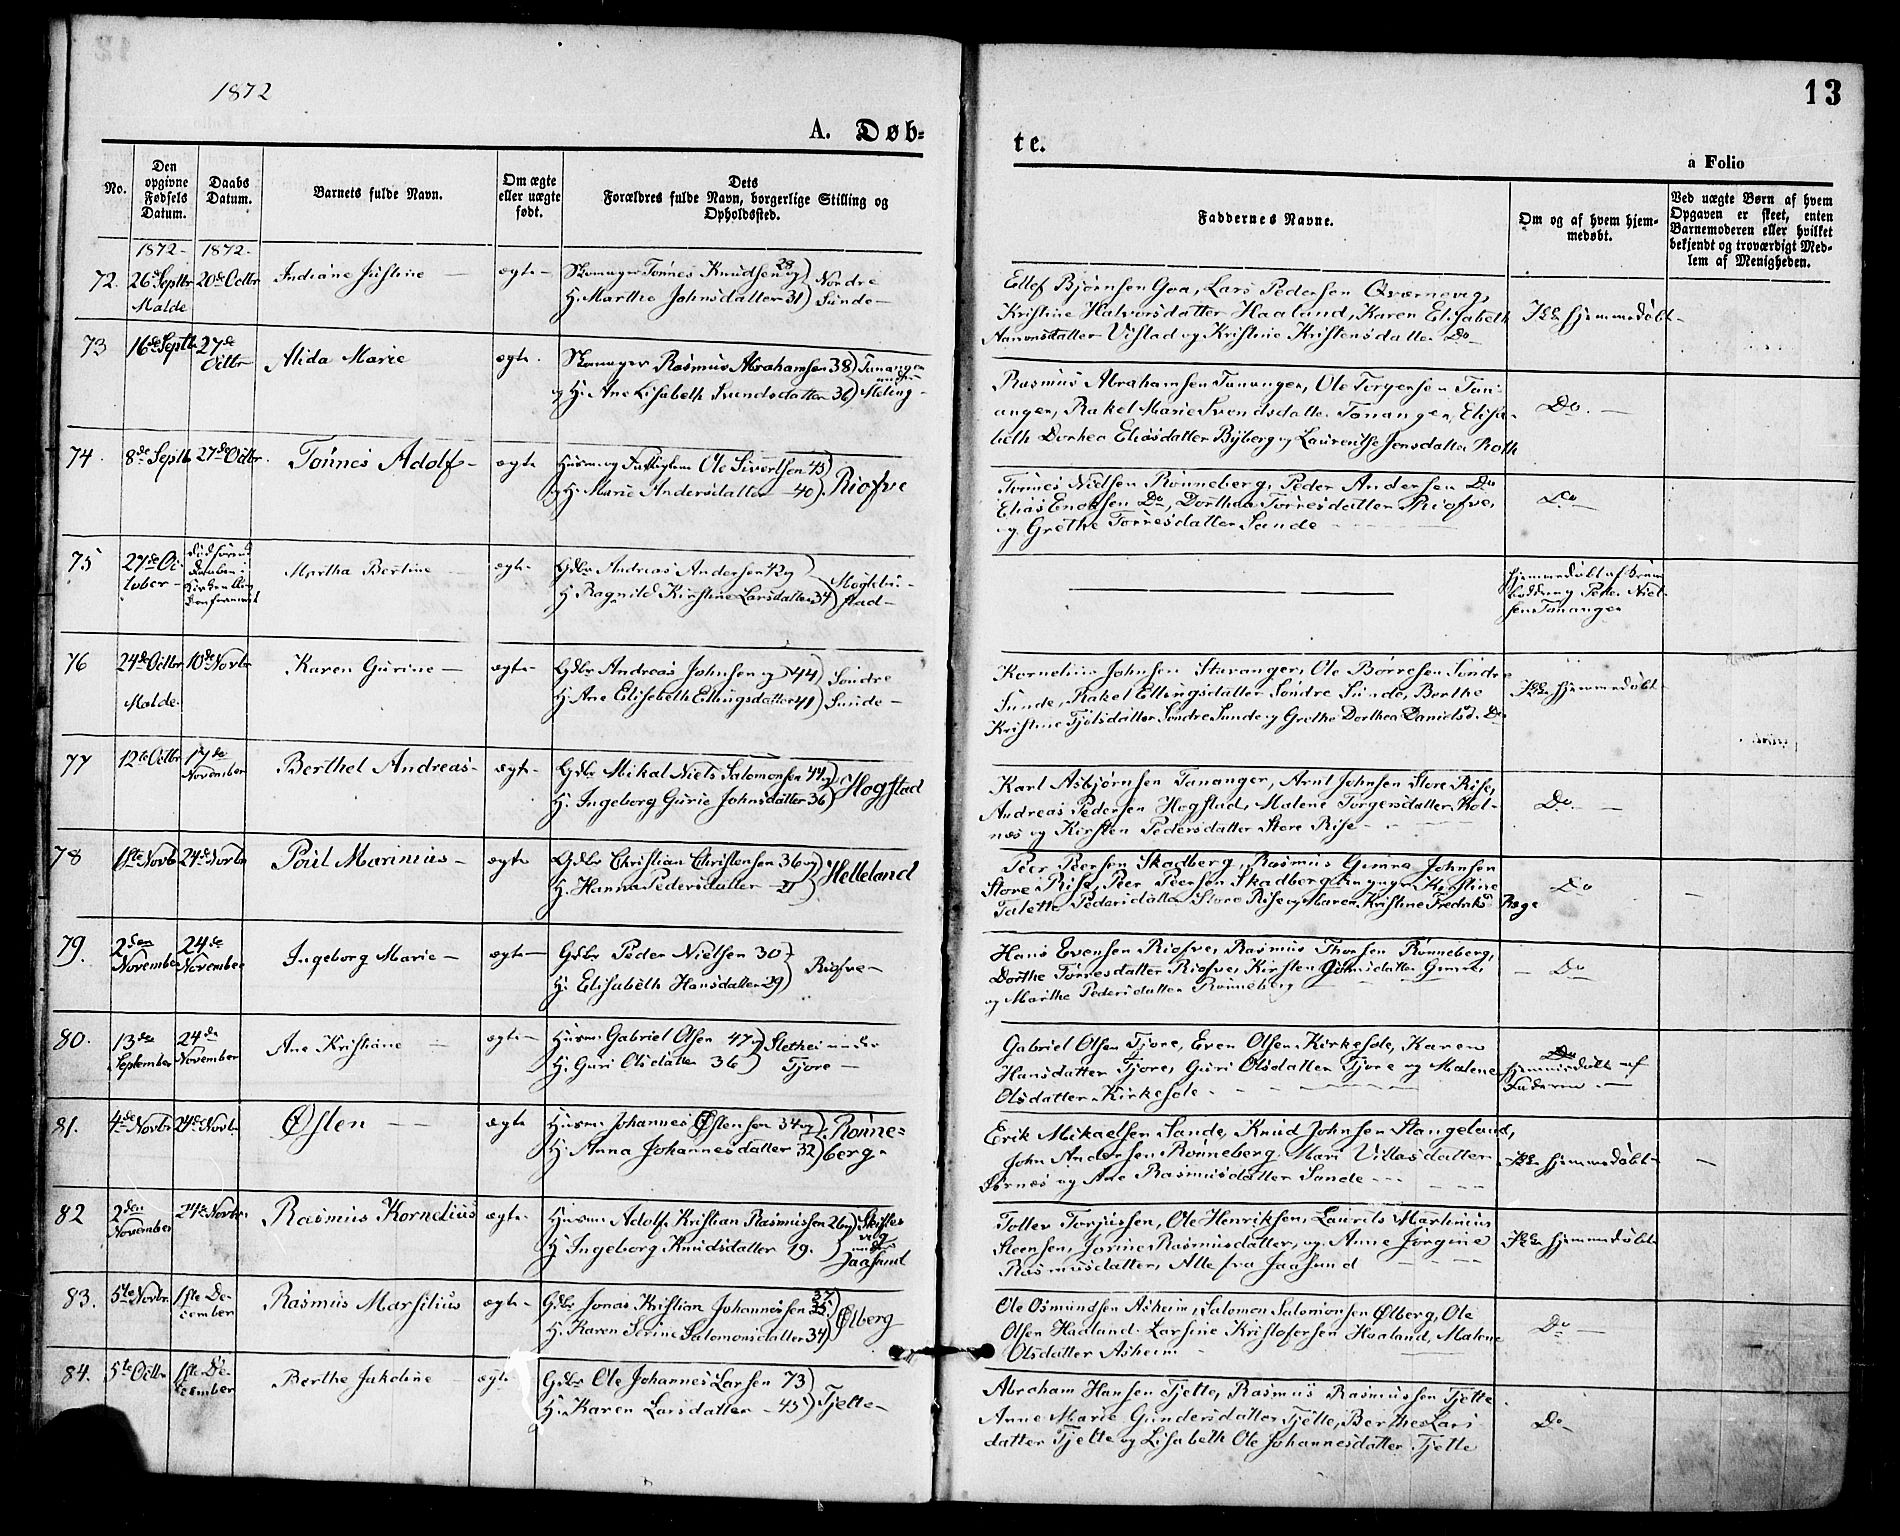 1872
13
A. Døb=
te.
a Folio
No.
Den opgivne Fødsels Datum.
Daabs Datum.
Barnets fulde Navn.
Om ægte eller uægte født.
Dets Forældres fulde Navn, borgerlige Stilling og Opholdssted.
Faddernes Navne.
Om og af hvem hjem-
medøbt.
Ved uægte Børn af hvem
Opgaven er skeet, enten
Barnemoderen eller hvilket
bekjendt og troværdigt Med-
lem af Menigheden.
1872- 1872-
72. 26de Septbr 20de Octbr Indiane Justine – ægte – Skomager Tønnes Knudsen 28 og Nordre
Malde H. Marthe Johnsdatter 31) Sunde –
Ellef Bjørnsen Goa, Lars Pedersen Qværnevig,
Kristine Halvorsdatter Haaland, Karen Elisabeth Ikke hjemmedøbt –
Aanonsdatter Vistad og Kristine Kristensdatter Do
73 16de Septbr 27de Octbr Alida Marie ægte. Skomager Rasmus Abrahamsen 38) Tananger
og H. Ane Lisabeth Svendsdatter 36) under Meling –
Rasmus Abrahamsen Tananger, Ole Torgersen Tan-
anger, Rakel Marie Svendsdatter Tananger, Elisa- Do. –
beth Dorhea Eliasdatter Byberg og Laurentse Jonsdatter Roth
74. 8de Septb 27de Octbr. Tønnes Adolf – ægte Husm. og Ole Sivertsen 45)
og H. Marie Andersdatter – 40). Riofve
Tønnes Nielsen Rønneberg, Peder Andersen Do
Elias Enoksen Do, Dorthea Tørresdatter Riofve, Do –
og Grethe Tørresdatter Sande
75 27de Oc-
tober – Martha Bertine – ægte – Gdbr Andreas Andersen 42 og
H. Ragnild Kirstine Larsdatter 34) Mogkle-
stad –
hjemmedøbt af
Peder Niel-
sen Tananger
76 24de Octbr 10de Novbr Karen Gurine – ægte – Gdbr Andreas Johnsen og 44) Søndre
Malde. H. Ane Elisebeth Ellingsdatter 41) Sunde –
Kornelius Johnsen Stavanger, Ole Børresen Søndre
Sunde, Rakel Ellingsdatter Søndre Sunde, Berthe Ikke hjemmedøbt –
Kristine Tjølsdatter Søndre Sunde og Grethe Dorthea Danielsd. Do
77 12te Octbr 17de November Berthel Andreas – ægte – Gdbr Mikal Niels Salomonsen 44 og Hogstad
H. Ingeborg Gurie Johnsdatter 36)
Karl Asbjørnsen Tananger, Arnt Johnsen Store Rise,
Andreas Pedersen Hogstad, Malene Torgersdatter Kol- Do –
nes og Kirsten Pedersdatter Store Rise –
78 1ste Novb 24de Novbr Poul Marinius – ægte Gdbr Christian Christensen 36 og Helleland
H. Hanna Pedersdatter – 21
Peer Peersen Skadberg, Rasmus Gimre Johnsen
Store Rise, Peer Peersen Skadberg Kirstine Do –
Talette Pedersdatter Store Rise og Maren Kristine Fredriksd Røge
79. 2den November 24de November Ingeborg Marie – ægte – Gdbr Peder Nielsen 30 –
H. Elisabeth Hansdatter 29) Riofve –
Hans Evensen Riofve, Rasmus Thorsen Rønneberg,
Dorthe Tørresdatter Riofve, Kirsten Johnsdatter Gimre, – Do
og Marthe Pedersdatter Rønneberg
80. 13de September 24de November Ane Kristiane – ægte – Husm. Gabriel Olsen 47 Slethei under
H. Guri Olsdatter 36) Tjore –
Gabriel Olsen Tjore, Even Olsen Kirkesole, Karen Do
Hansdatter Tjore, Guri Olsdatter Tjore og Malene hjemmedøbt af
Olsdatter Kirkesole. Faderen. –
81. 4de Novbr 24de Novb. Østen – – ægte Husm. Johannes Østensen 34 og Rønne=
H. Anna Johannesdatter 32) berg –
Erik Mikaelsen Sande, Knud Johnsen Stangeland,
John Andersen Rønneberg, Mari Villasdatter Ikke hjemmedøbt –
Sørnes og Ane Rasmusdatter Sande –
82 2den November 24de Novbr. Rasmus Kornelius ægte – Husm. Adolf Kristian Rasmussen 26 og Skiftes
H. Ingeborg Knudsdatter 19. vig under Jaasund
Tollev Torjussen, Ole Henriksen, Laurits Martinius
Steensen, Jorine Rasmusdatter, og Anne Jørgine Ikke hjemmedøbt
Rasmusdatter, Alle fra Jaasund
83. 5te Novbr. 1ste De-
cember Rasmus Marsilius ægte – Gdbr Jonas Kristian Johannesen 37
H. Karen Serine Salomonsdatter 34) Ølberg
Ole Osmundsen Asheim, Salomon Salomonsen Ølberg, Ole
Olsen Haaland. Larsine Kristofersen Haaland, Malene Do –
Olsdatter Asheim –
84. 5te Octbr 1ste De-
cember Berthe Jakobine ægte Gdbr Ole Johannes Larsen 73)
H. Karen Larsdatter – 45) Tjelte –
Abraham Hansen Tjelte, Rasmus Rasmussen Tjelte
Anne Marie Gundersdatter Tjelte, Berthe Lars- Do –
datter Tjelte og Lisabeth Ole Johannesdatter Tjelte